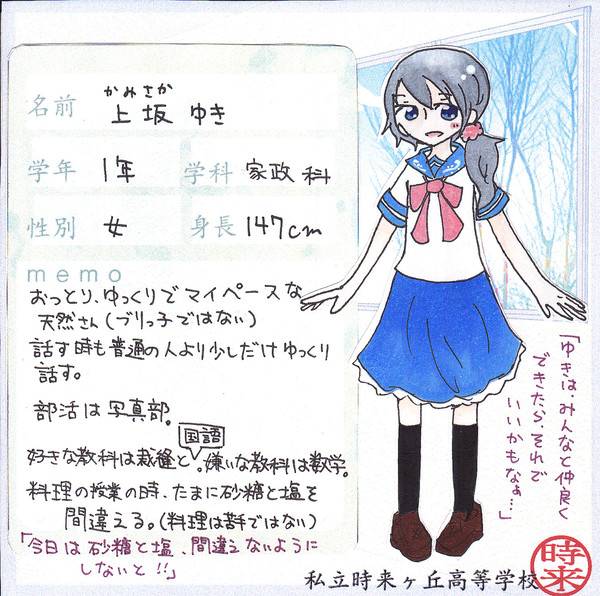 かみさか
名前 上坂 ゆき
学年 1年 学科 家政科
性別 女 身長 147cm
memo
おっとり、ゆっくりでマイペースな
天然さん(ブリっ子ではない)
話す時も普通の人より少しだけゆっくり
話す。
部活は写真部。
国語
好きな教科は裁縫と。嫌いな教科は数学。
料理の授業の時、たまに砂糖と塩を
間違える。(料理は苦手ではない)
「今日は砂糖と塩、間違えないように
しないと!!」
「ゆきは、みんなと仲良く
できたら、それで
いいかもなぁ…」
私立時来ヶ丘高等学校
時来